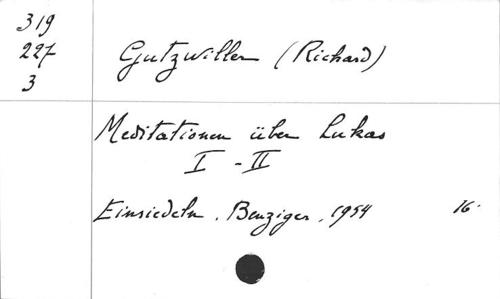 319
227
3
Gutzwiller (Richard)
Meditationen über Lukas
I - II
Einsiedeln. Benziger. 1954 16.